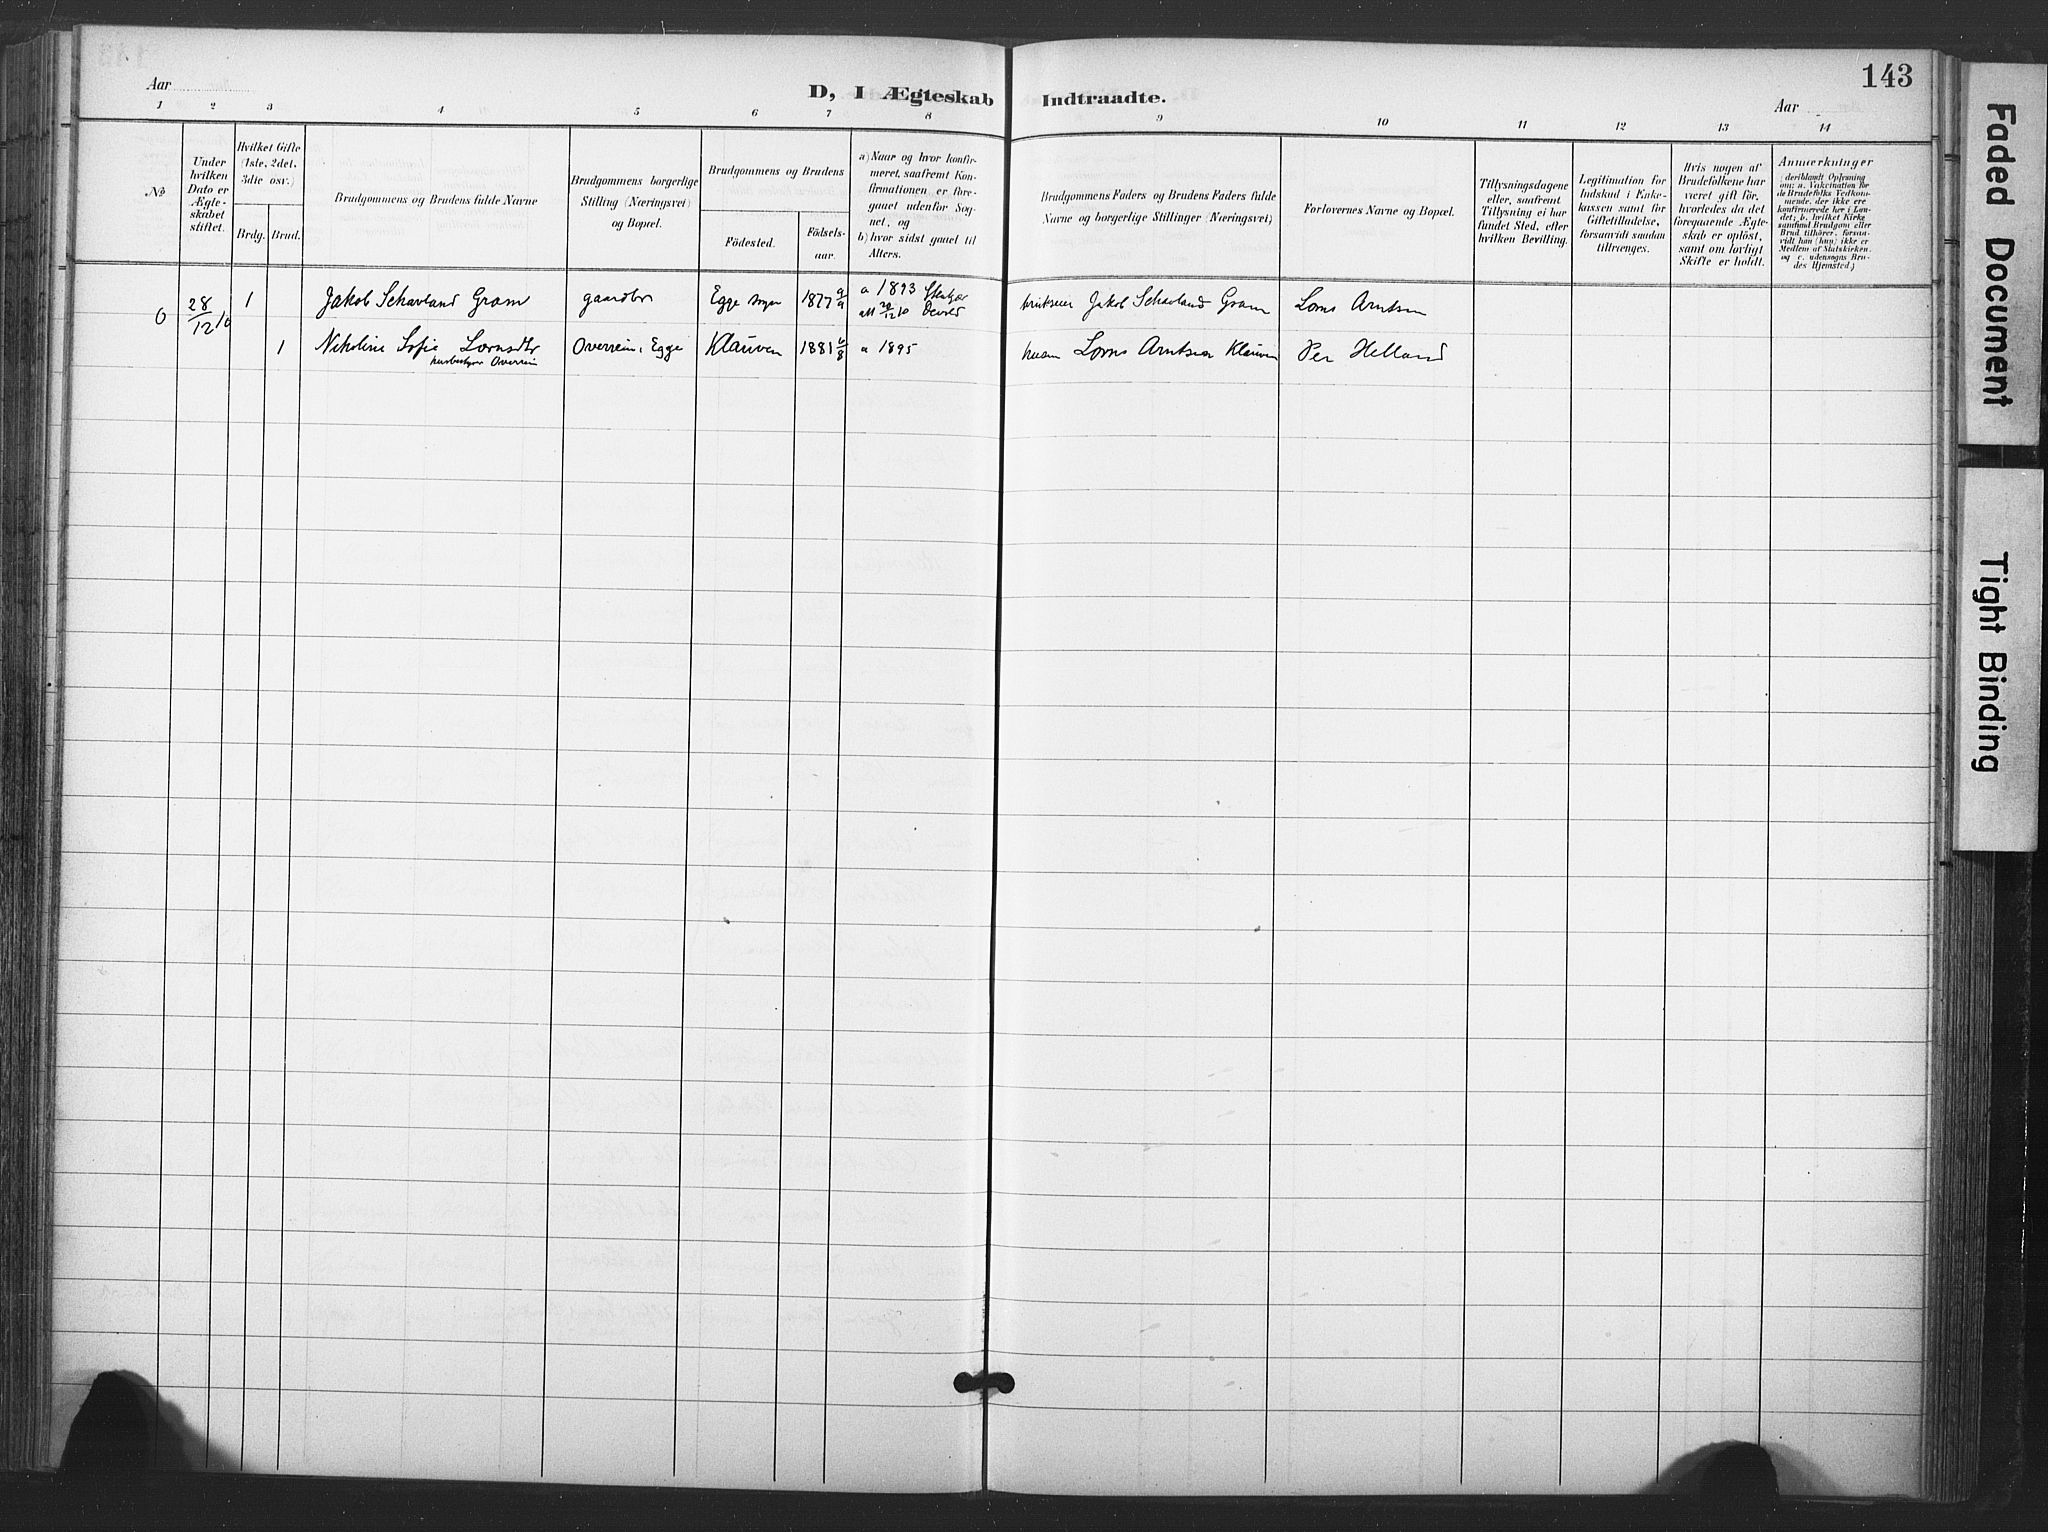 143
Aar
D, I Ægteskab Indtraadte.
Aar
1 2 3 4 5 6 7 8 9 10 11 12 13 14
№
Under
hvilken
Dato er
Ægte-
skabet
stiftet.
Hvilket Gifte
(1ste, 2det,
3die osv.)
Brdg. Brud.
Brudgommens og Brudens fulde Navne
Brudgommens borgerlige
Stilling (Næringsvei)
og Bopæl.
Brudgommens og Brudens
Födested.
Födsels-
aar.
a) Naar og hvor konfir-
meret, saafremt Kon-
firmationen er fore-
gaaet udenfor Sog-
net, og
b) hvor sidst gaaet til
Alters.
Brudgommens Faders og Brudens Faders fulde
Navne og borgerlige Stillinger (Næringsvei)
Forlovernes Navne og Bopæl.
Tillysningsdagene
eller, saafremt
Tillysning ei har
fundet Sted, efter
hvilken Bevilling.
Legitimation for
Indskud i Enke-
kassen samt for
Giftetilladelse,
forsaavidt saadan
tiltrænges.
Hvis nogen af
Brudefolkene har
været gift för,
hvorledes da det
foregaaende Ægte-
skab er oplöst,
samt om lovligt
Skifte er holdt.
Anmærkninger
(deriblandt Oplysning
om: a. Vakcination for
de Brudefolks Vedkom-
mende, der ikke ere
konfirmerede her i Lan-
det; b. hvilket Kirke-
samfund Brudgom eller
Brud tilhörer, forsaa-
vidt han (hun) ikke er
Medlem af Statskirken,
og c. udensogns Bru-
des Hjemsted.)
6 28/12 10 1 Jakob Schavland Gram gaardbr Egge sogn 1877 9/9 a 1893
alt 20/12 10
Jakob Schavland Gram Lorns Arntsen
1 Nikoline Sofie Lornsdtr Overrein, Egge Klauven 1881 6/8 a 1895 Lorns Arntsen Klauven Per Helland
Overrein
Faded Document
Tight Binding